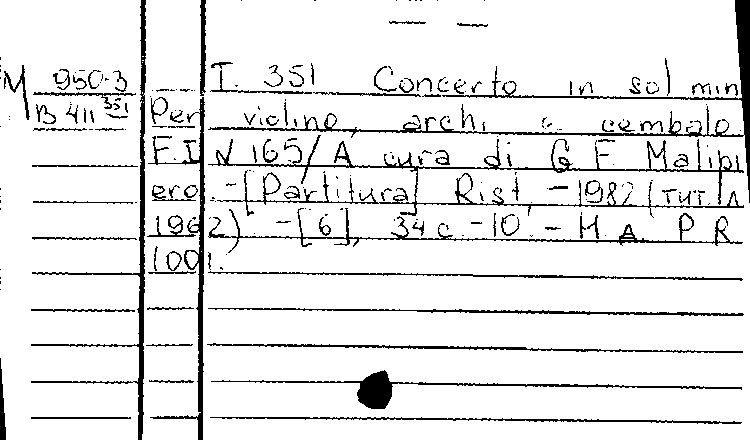 — —
M 950-3 T. 351 Concerto in sol min
B 411 351 Per violino, archi e cembalo
F. I N 165/A cura di G F Malipi
ero. -[Partitura] Rist, -1982 (тит. л
1962) -[6], 34 c -10 - H A. P R
1001.